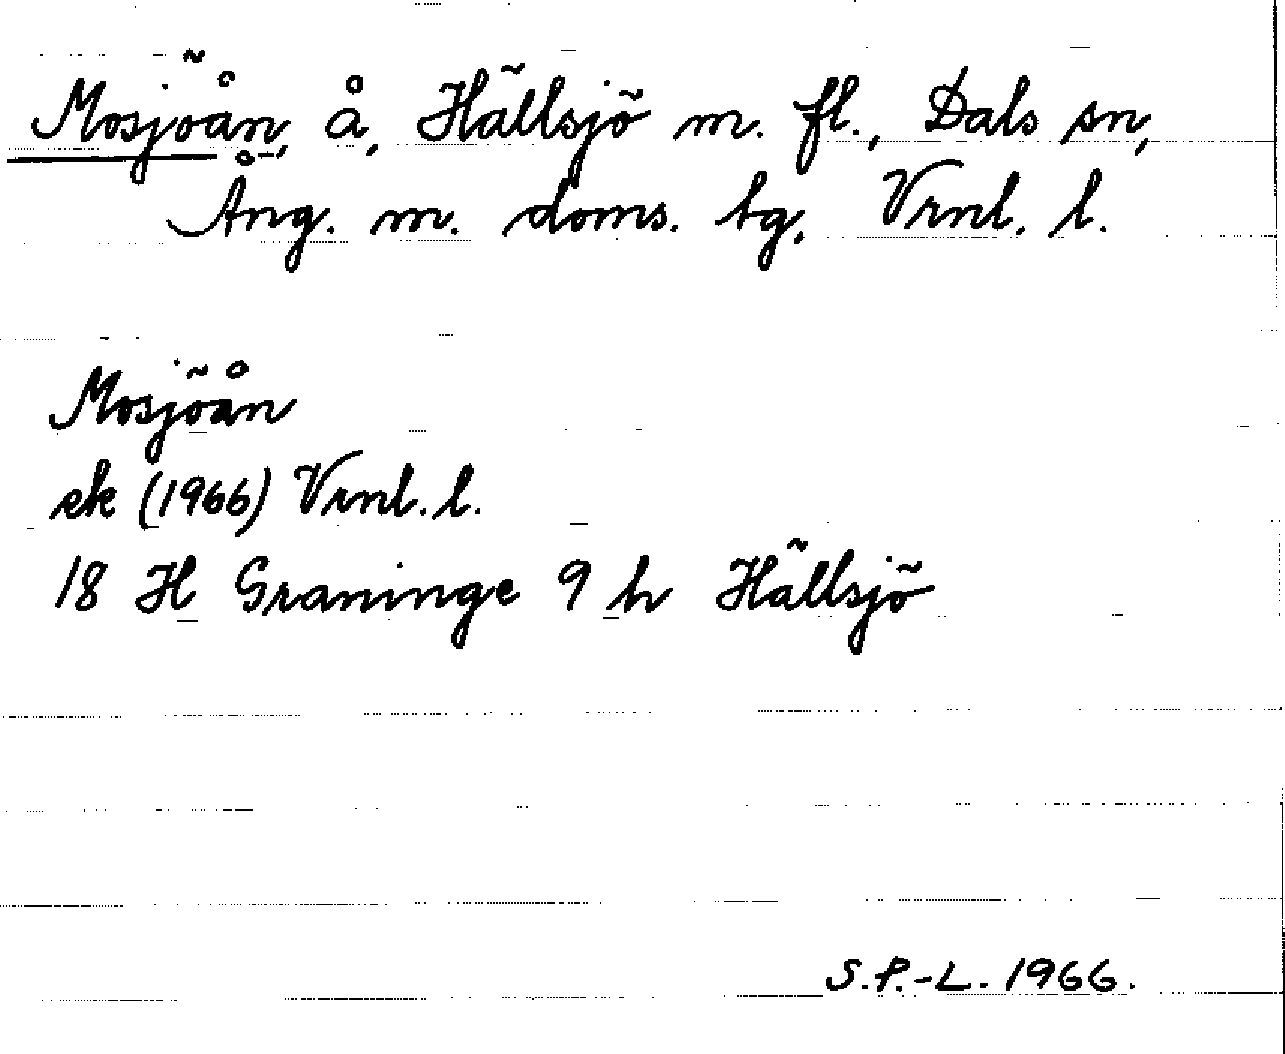 Mosjöån, å, Hällsjö m. fl., Dals sn,
Ång. m. doms. tg, Vrnl. l.
Mosjöån
ek (1966) Vrnl. l.
18 H Graninge 9 h Hällsjö
S.P.-L. 1966.